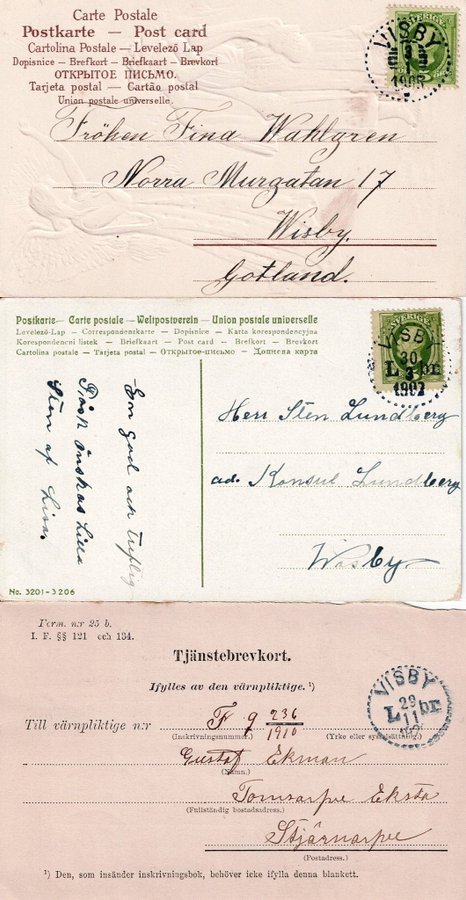 Carte Postale
Postkarte — Post card
Cartolina Postale — Levelező Lap
Dopisnice — Brefkort — Briefkaart — Brevkort
ОТКРЫТОЕ ПИСЬМО.
Tarjeta postal — Cartão postal
Union postale universelle.
SVERIGE
VISBY
Fröken Fina Wahlgren
Norra Murgatan 17
Wisby.
Gotland.
Postkarte — Carte postale — Weltpostverein — Union postale universelle
Levelező-Lap — Correspondenzkarte — Dopisnice — Karta korespondencyjna
Korespondenční lístek — Briefkaart — Post card — Brefkort — Brevkort
Cartolina postale — Tarjeta postal — Открытое-письмо — Дописна карта
SVERIGE
VISBY
30
L br.
3
En god och
Påsk önskas Lilla
Sten af
Herr Sten Lundberg
ad. Konsul Lundberg
Wisby
No. 3201-3206
Form. n:r 25 b.
I. F. §§ 121 och 134.
Tjänstebrevkort.
Ifylles av den värnpliktige. ¹)
VISBY
29
L br.
11
Till värnpliktige n:r F 9 236/1910
(Inskrivningsnummer.) (Yrke eller sysselsättning.)
Gustaf Ekman
(Namn.)
Eksta
(Fullständig bostadsadress.)
Stjärnarve
(Postadress.)
¹) Den, som insänder inskrivningsbok, behöver icke ifylla denna blankett.